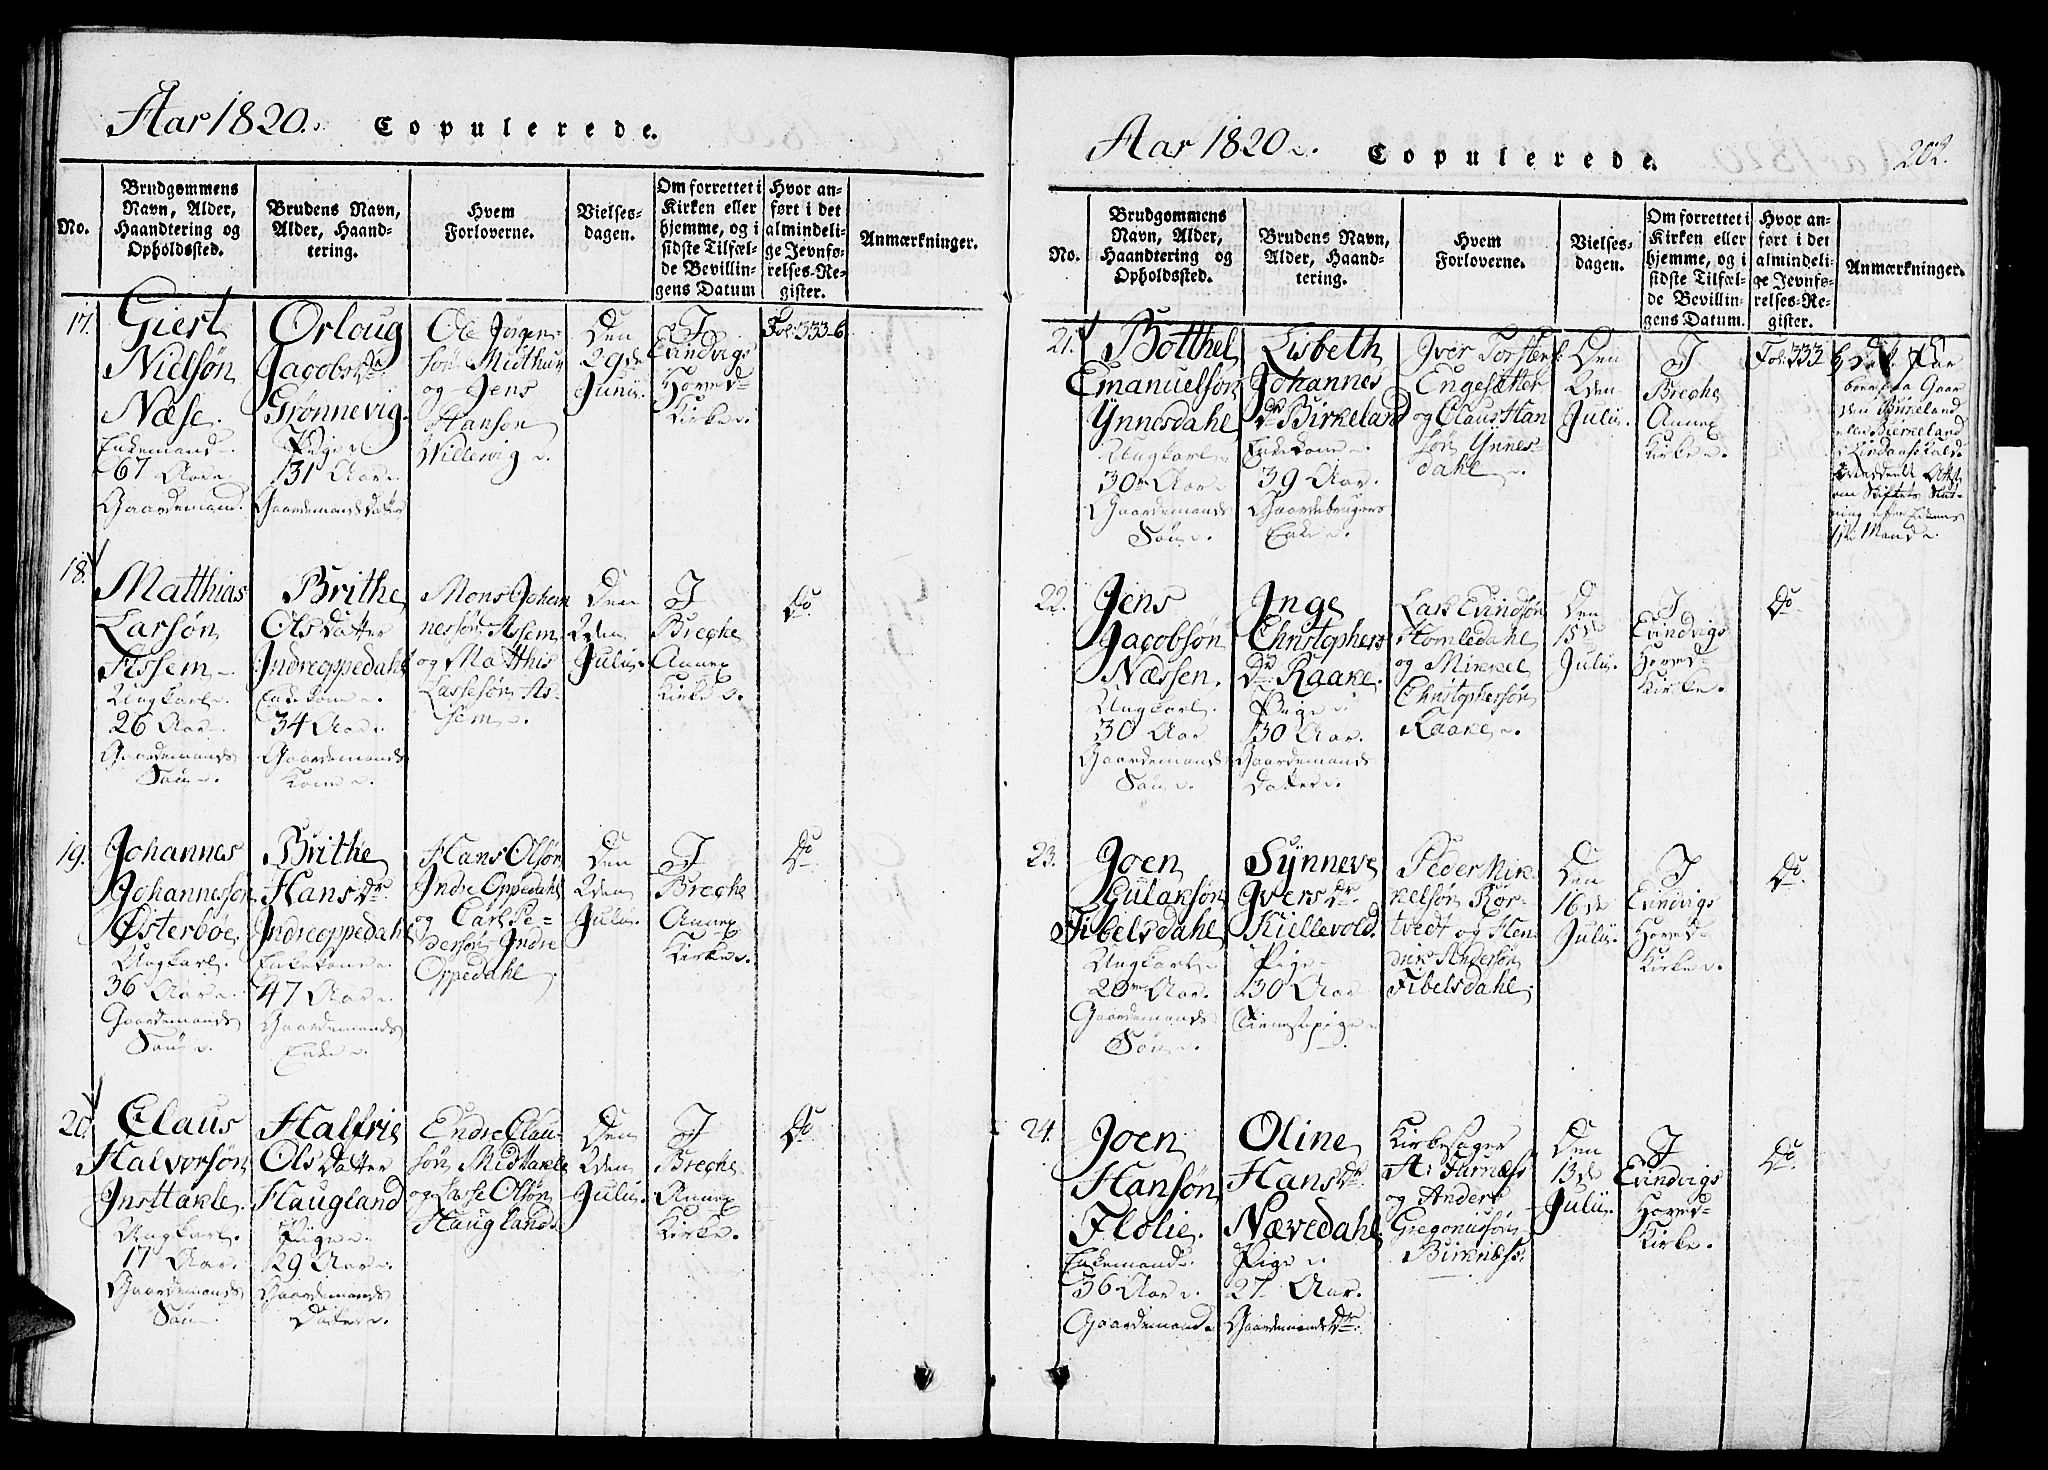 Aar 1820. Copulerede.
No.
Brudgommens
Navn, Alder,
Haandtering og
Opholdssted.
Brudens Navn,
Alder, Haand-
tering.
Hvem
Forloverne.
Vielses-
dagen.
Om forrettet i
Kirken eller
hjemme, og i
sidste Tilfæl-
de Bevillin-
gens Datum
Hvor an-
ført i det
almindeli-
ge Jevnfø-
relses-Re-
gister.
Anmærkninger.
17.
Giert
Nielsøn
Næse.
Enkemand
67 Aar
Gaardemand.
Orloug
Jacobs Dr
Grønnevig.
Pige
31 Aar
Gaardemands Datter
Ole Jørgen
søn Midthun
og Jens
Hansøn
Willevig
Den
29de
Junii.
I
Evindvigs
Hoved
Kirke
Fol: 333-6
18.
Matthias
Larsøn
Assem
Ungkarl.
26 Aar
Gaardemands
Søn
Brithe
Ols Datter
Indreoppedahl
Enkekone
34 Aar
Gaardemands
Kone
Mons Johan
nessøn Assem
og Matthis
Lassesøn As-
sem
Den
2den
Julii.
I
Breche
Annex
Kirke
Do
19.
Johannes
Johannessøn
Østerbøe.
Ungkarl.
36 Aar
Gaardemands
Søn
Brithe
Hans Dr
Indreoppedahl
Enkekone
47 Aar
Gaardemands
Enke
Hans Olsøn
Indre Oppedahl
og Carl Pe-
dersøn Indre
Oppedahl
Den
2den
Julii.
I
Breche
Annex
Kirke
Do
20.
Claus
Halvorsøn
Insttakle.
Ungkarl.
17 Aar.
Gaardemands
Søn
Halfrie
Ols Datter
Haugland
Pige
29 Aar
Gaardemands
Datter
Endre Clau-
søn Midttakle
og Lasse Olsøn
Haugland
Den
2den
Julii.
I
Breche
Annex
Kirke.
Do
Aar 1820. Copulerede. 202.
No.
Brudgommens
Navn, Alder,
Haandtering og
Opholdssted.
Brudens Navn,
Alder, Haand-
tering.
Hvem
Forloverne.
Vielses-
dagen.
Om forrettet i
Kirken eller
hjemme, og i
sidste Tilfæl-
de Bevillin-
gens Datum.
Hvor an-
ført i det
almindeli-
ge Jevnfø-
relses-Re-
gister.
Anmærkninger.
21.
Botthel
Emanuelsøn
Ynnesdahl
Ungkarl
30 Aar
Gaardemands
Søn
Lisbeth
Johannes
Dr Birkeland
Enkekone
39 Aar.
Gaardebrugers
Enke
Iver Torstens:
Engesætter
og Claus Han
søn Ynnes-
dahl
Den
2den
Julii.
I
Breche
Annex
Kirke
Fol: 333
Par
boer paa Gaar
den Birkeland
eller Bierkeland
om Skiftets Slut-
ning efter Enkens
Mand
22.
Jens
Jacobsøn
Næssen.
Ungkarl.
30 Aar
Gaardemands
Søn
Inge
Christophers
Dr Raake.
Pige
30 Aar.
Gaardemands
Datter
Lars Evindsøn
Homledahl
og Mikkel
Christophersøn
Raake
Den
15de
Julii.
I
Evindvigs
Hoved
Kirke
Do
23.
Joen
Gulaksøn
Fibelsdahl
Ungkarl
20 Aar.
Gaardemands
Søn
Synneve
Ivers Dr
Kiellevold.
Pige
30 Aar
Tienestepige
Peder Mik
kelsøn Kor-
tvedt og Hen
drik Andersøn
Fibelsdahl
Den
16de
Julii.
I
Evindvigs
Hoved
Kirke
Do.
24.
Joen
Hansøn
Flolie.
Enkemand
36 Aar
Gaardemand
Oline
Hans Dr
Nævedahl
Pige
27 Aar.
Gaardemands Dr
Kirkesager
A: Furnæss
og Anders
Gregoriussøn
Birknæss.
Den
13de
Julii.
I
Evindvigs
Hoved
Kirke.
Do.